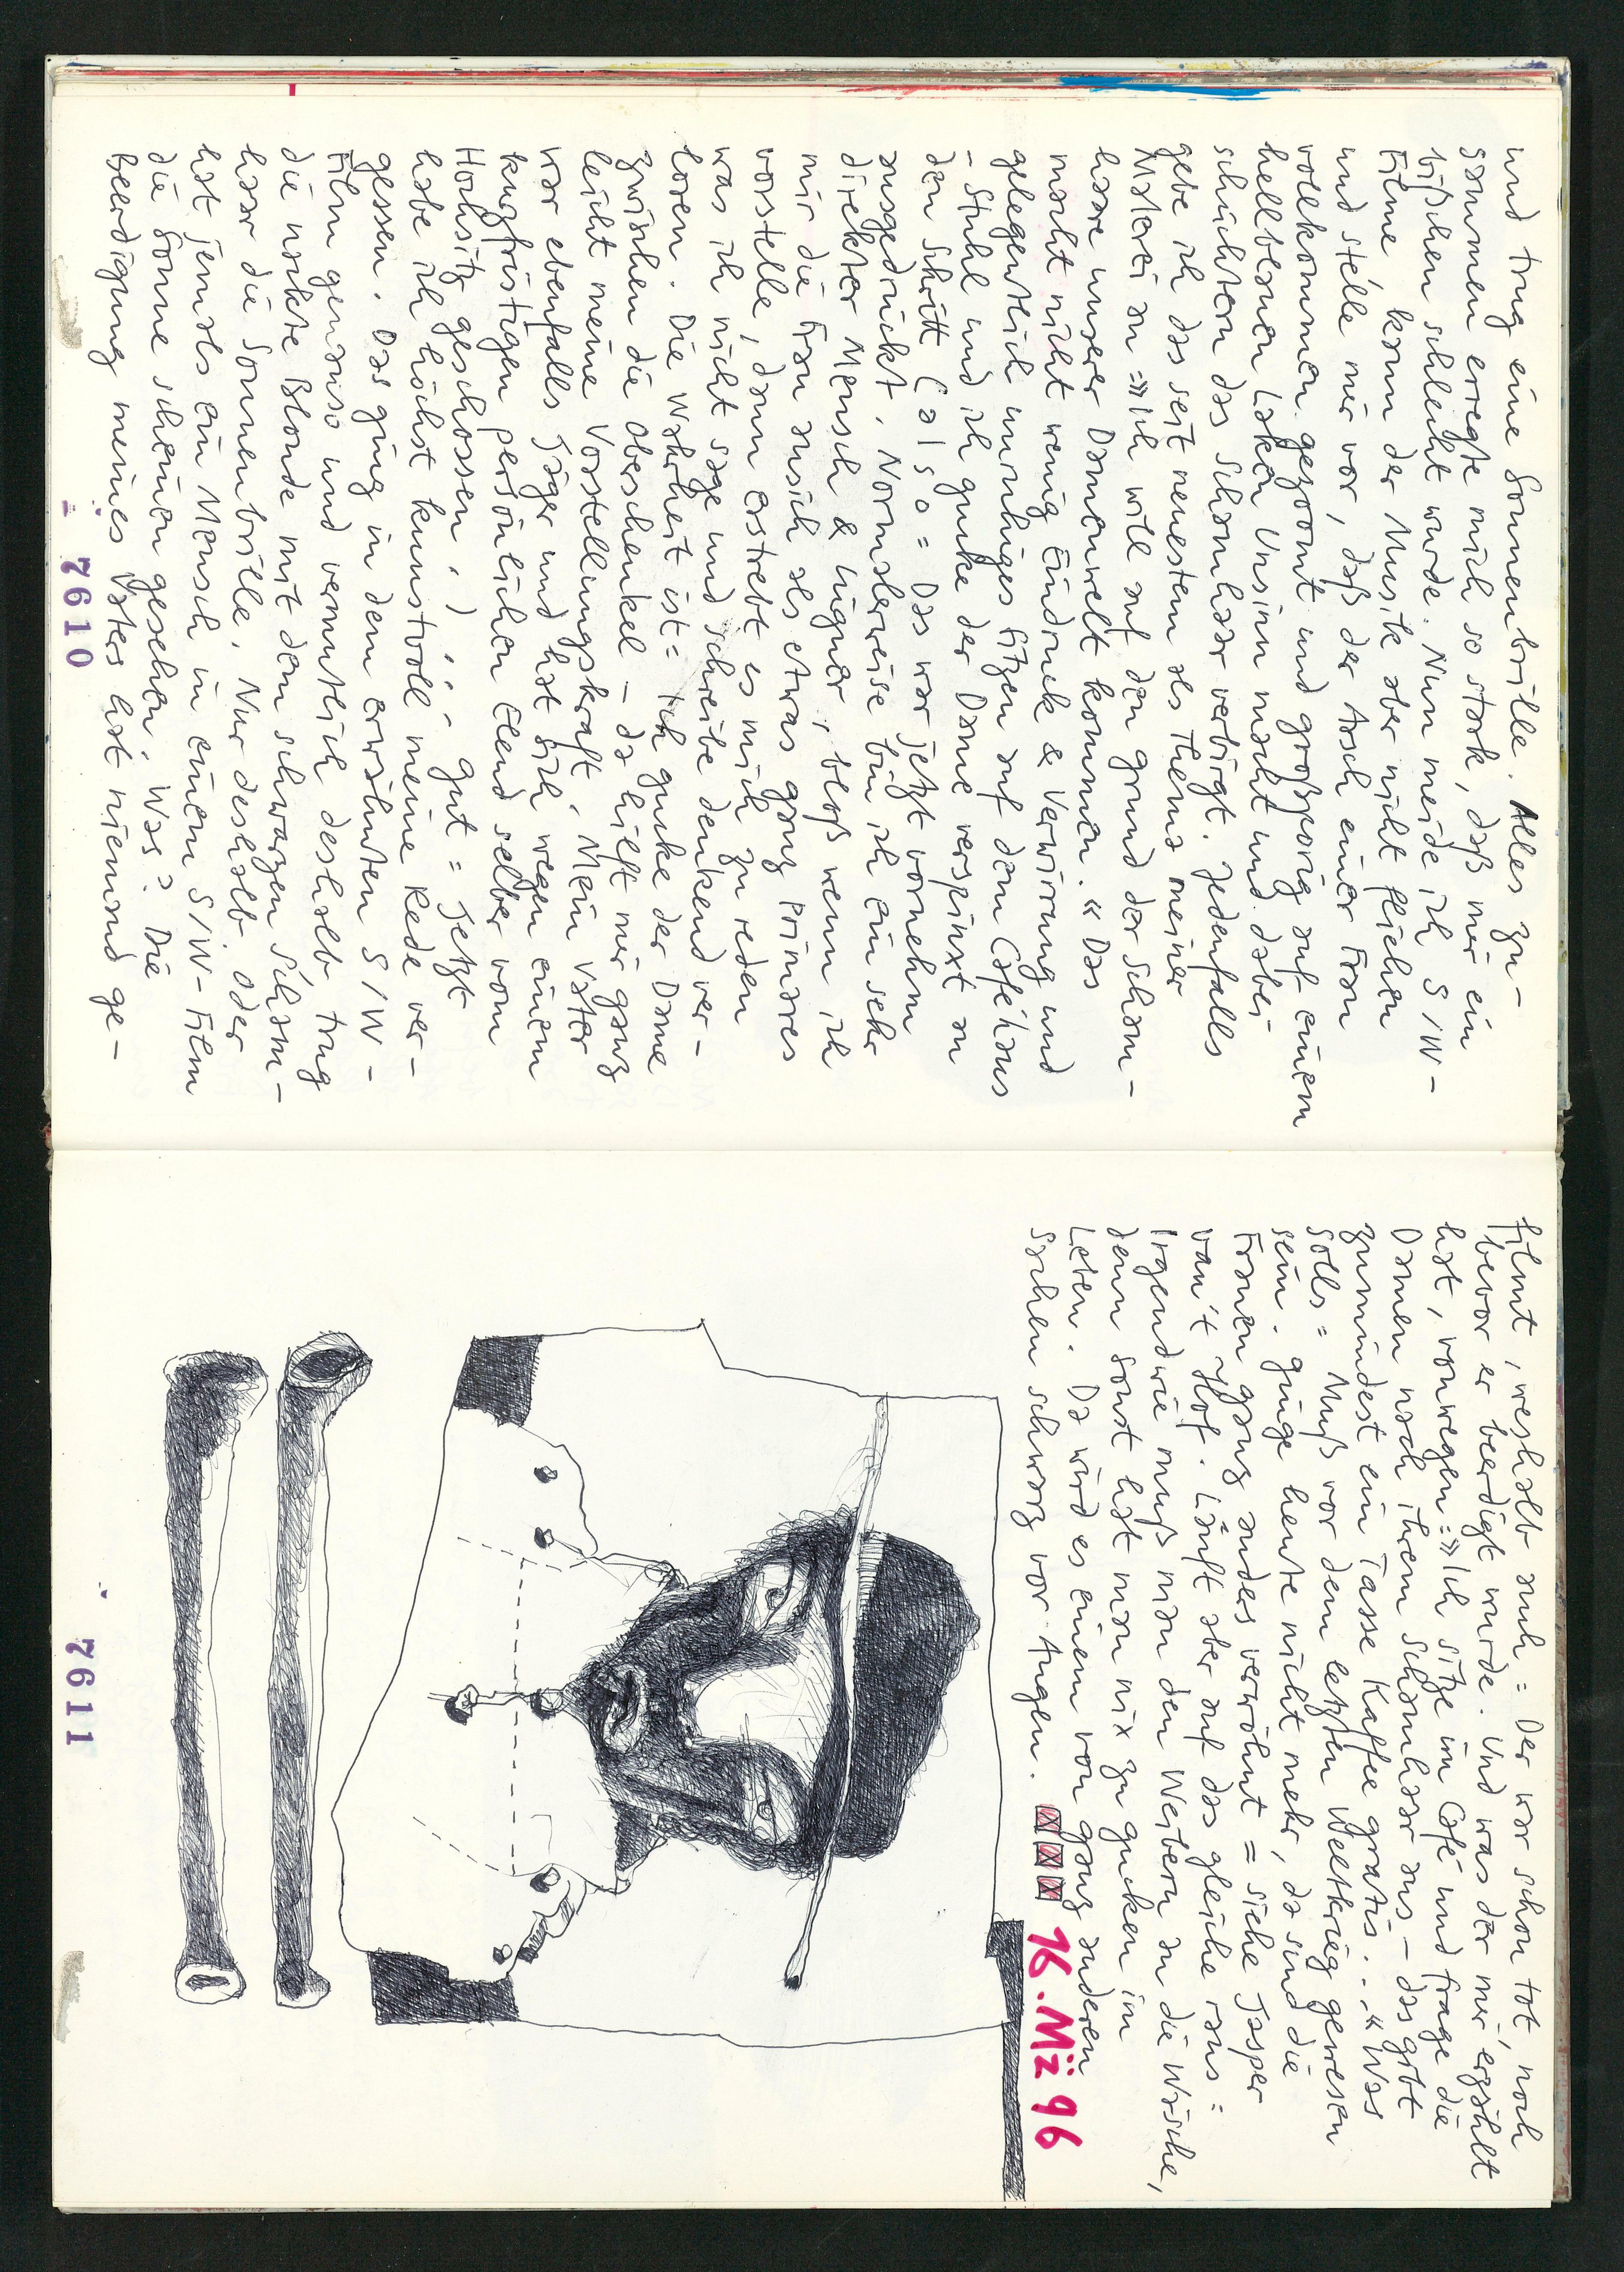 und trug eine Sonnenbrille. Alles zu-
sammen erregte mich so stark, daß mir ein
bißchen schlecht wurde. Nun meide ich S/W-
Filme, kann der Musik aber nicht fliehen
und stelle mir vor, daß der Arsch einer Frau
vollkommen gezoomt und großporig auf einem
hellblauen Laken Unsinn macht und dabei
schüchtern das Schamhaar verbirgt. Jedenfalls
gebe ich das seit neuestem als Thema meiner
Malerei an =»Ich will auf den Grund der Scham-
haare unserer Damenwelt kommen.« Das
macht nicht wenig Eindruck & Verwirrung und
gelegentlich unruhiges Sitzen auf dem Caféhaus
- Stuhl und ich gucke der Dame verspinxt an
den Schritt (also = Das war jetzt vornehm
ausgedrückt. Normalerweise bin ich ein sehr
direkter Mensch & Lügner, bloß wenn ich
mir die Frau ansich als etwas ganz Primäres
vorstelle, dann erstrebt es mich zu reden
was ich nicht sage und schreibe denkend ver-
loren. Die Wahrheit ist = Ich gucke der Dame
zwischen die Oberschenkel – da hilft mir ganz
leicht meine Vorstellungskraft. Mein Vater
war ebenfalls Jäger und hat sich wegen einem
kurzfristigen persönlichen Elend selber vom
Hochsitz geschossen.) . . . gut = Jetzt
habe ich höchst kunstvoll meine Rede ver-
gessen. Das ging in dem erwähnten S/W-
Film genauso und vermutlich deshalb trug
die nackte Blonde mit dem schwarzen Scham-
haar die Sonnenbrille. Nur deshalb. Oder
hat jemals ein Mensch in einem S/W-Film
die Sonne scheinen gesehen. Was? Die
Beerdigung meines Vaters hat niemand ge-
7610
filmt, weshalb auch = Der war schon tot, noch
bevor er beerdigt wurde. Und was der mir erzählt
hat, vonwegen =»Ich sitze im Café und frage die
Damen nach ihrem Schamhaar aus – das gibt
zumindest ein Tasse Kaffee gratis...« Was
solls = Muß vor dem letzten Weltkrieg gewesen
sein. ginge heute nicht mehr, da sind die
Frauen ganz anders verwöhnt = siehe Jasper
van't Hof. Läuft aber auf das gleiche raus =
Irgendwie muß man den Weibern an die Wäsche,
denn sonst hat man nix zu gucken im
Leben. Da wird es einem von ganz anderen
Sachen schwarz vor Augen.
16. Mä 96
7611